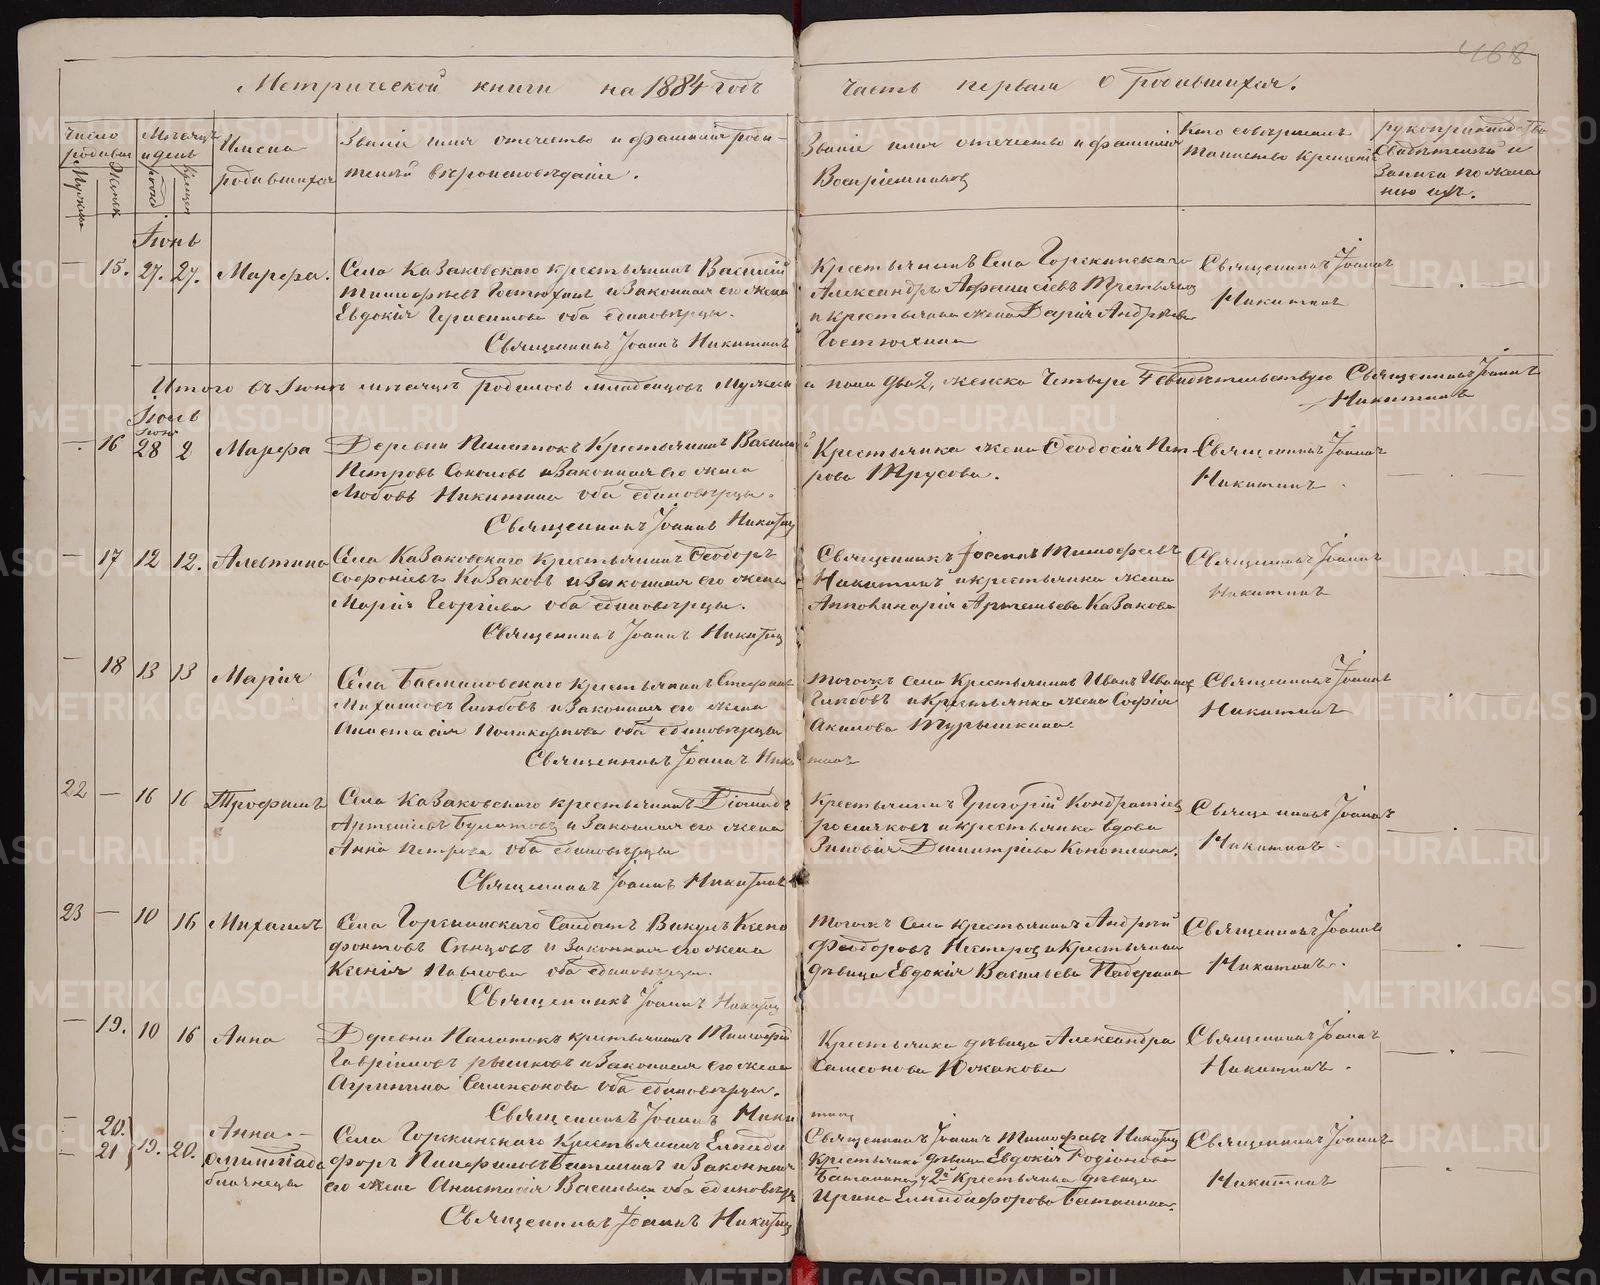 468
Метрической книги на 1884 годъ
Часть первая о родившихся.
Число родивш
Мужска
Женск
Мѣсяцъ и день
рожд
крещен
Имена
родившихся
Званіе имя отечество и фамилія роди-
телей вѣроисповѣданіе.
Званіе имя отечество и фамилія
Воспріемниковъ
Кто совершалъ
таинство крещенія
рукоприкладство
свидѣтелей и
записи по жела
нію ихъ.
Іюнь
— 15. 27. 27. Марѳа.
Села Казаковскаго крестьянинъ Василій
Тимоѳеевъ и Законная его жена
Евдокія Герасимова оба единовѣрцы.
Священникъ Іоаннъ Никитинъ
Крестьянинъ Села
Александръ Афанасіевъ Третьяковъ
и крестьянина жена Дарія Андреева
Священникъ Іоаннъ
Никитинъ
Итого въ Іюнѣ мѣсяцѣ родилось младенцовъ Мужска
го пола два 2, женска Четыре 4 свидѣтельствую Священникъ Іоаннъ
Никитинъ
Іюль
Іюня
— 16 28 2 Марѳа
Деревни Крестьянинъ Василій
Петровъ и Законная его жена
Любовь Никитина оба единовѣрцы.
Священникъ Іоаннъ Никитинъ
Крестьянка жена Ѳеодосія Пет
рова Трусова.
Священникъ Іоаннъ
Никитинъ.
— 17 12 12. Алевтина
Села Казаковскаго крестьянинъ Ѳеодоръ
Софоніевъ Казаковъ и Законная его жена
Марія Георгіева оба единовѣрцы.
Священникъ Іоаннъ Никитинъ
Священникъ Іоаннъ Тимоѳеевъ
Никитинъ и крестьянка жена
Апполинарія Артемьева Казакова
Священникъ Іоаннъ
Никитинъ
— 18 13 13 Марія
Села крестьянинъ Стефанъ
Михаиловъ Глибовъ и Законная его жена
Анастасія Поликарпова оба единовѣрцы
Священникъ Іоаннъ Ники
тинъ
Тогожъ Села Крестьянинъ Иванъ Ивановъ
Глибовъ и крестьянка жена Софія
Акимова Турышкина.
Священникъ Іоаннъ
Никитинъ
22 — 16 16 Трофимъ
Села Казаковскаго крестьянинъ Діомидъ
Артеміевъ Булатовъ и Законная его жена
Анна Петрова оба единовѣрцы
Священникъ Іоаннъ Никитинъ
Крестьянинъ Григорій Кондратіевъ
и крестьянка вдова
Зиновія Димитріева Коноплина.
Священникъ Іоаннъ
Никитинъ.
23 — 10 16 Михаилъ
Села Солдатъ Викулъ Ксено
фонтовъ и Законная его жена
Ксенія Павлова оба единовѣрцы.
Священникъ Іоаннъ Никитинъ
Тогожъ Села крестьянинъ Андрей
Ѳеодоровъ Нестеровъ и Крестьянская
дѣвица Евдокія Васильева
Священникъ Іоаннъ
Никитинъ.
— 19. 10 16 Анна
Деревни крестьянинъ Тимоѳей
Гавріиловъ и Законная его жена
Агрипина Сампсонова оба единовѣрцы.
Священникъ Іоаннъ Ники
тинъ
Крестьянка дѣвица Александра
Самсонова Южакова
Священникъ Іоаннъ
Никитинъ.
— 20. 21 19. 20. Анна —
Олимпіада
близнецы
Села Крестьянинъ Елпиди
форъ Панфиловъ Баталинъ и Законная
его жена Анастасія Васильева оба единовѣрцы
Священникъ Іоаннъ Никитинъ
Священникъ Іоаннъ Тимоѳеевъ Никитинъ
Крестьянка дѣвица Евдокія Родіонова
Баталина, у 2й Крестьянка дѣвица
Ирина Елпидифорова Баталина.
Священникъ Іоаннъ
Никитинъ
METRIKI.GASO-URAL.RU